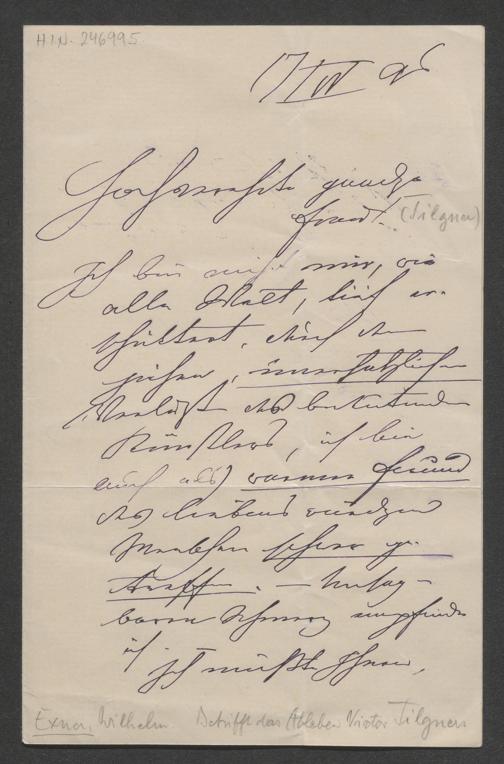 H.I.N. 246995
17/IV 96
Hochverehrte gnädige
Frau!
(Tilgner)
Ich bin nicht nur, wie
alle Welt, tief er-
schüttert, durch den
jähen, unersetzlichen
Verlust des bedeutenden
Künstlers, ich bin
auch als warmer Freund
des liebenswürdigen
Menschen schwer ge-
troffen. — Unsag-
baren Schmerz empfinde
ich.
Ich mußte Ihnen,
Exner, Wilhelm Betrifft das Ableben Victor Tilgners